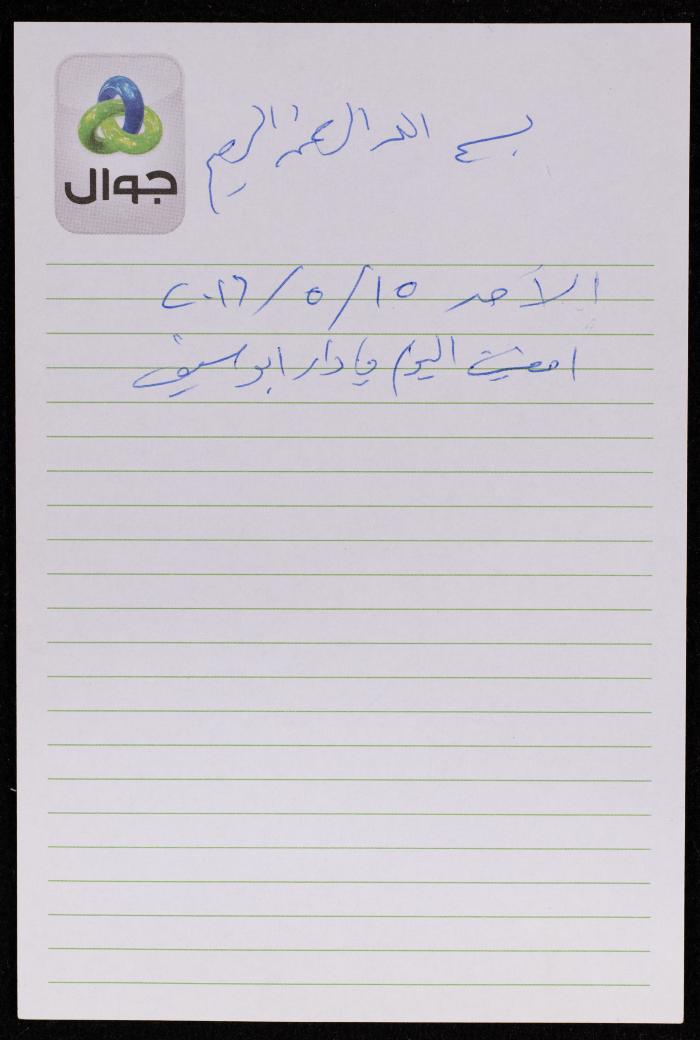 جوال
بسم الله الرحمن الرحيم
الأحد ١٥/٥/٢٠١٦
امضيت اليوم في دار ابو سيف